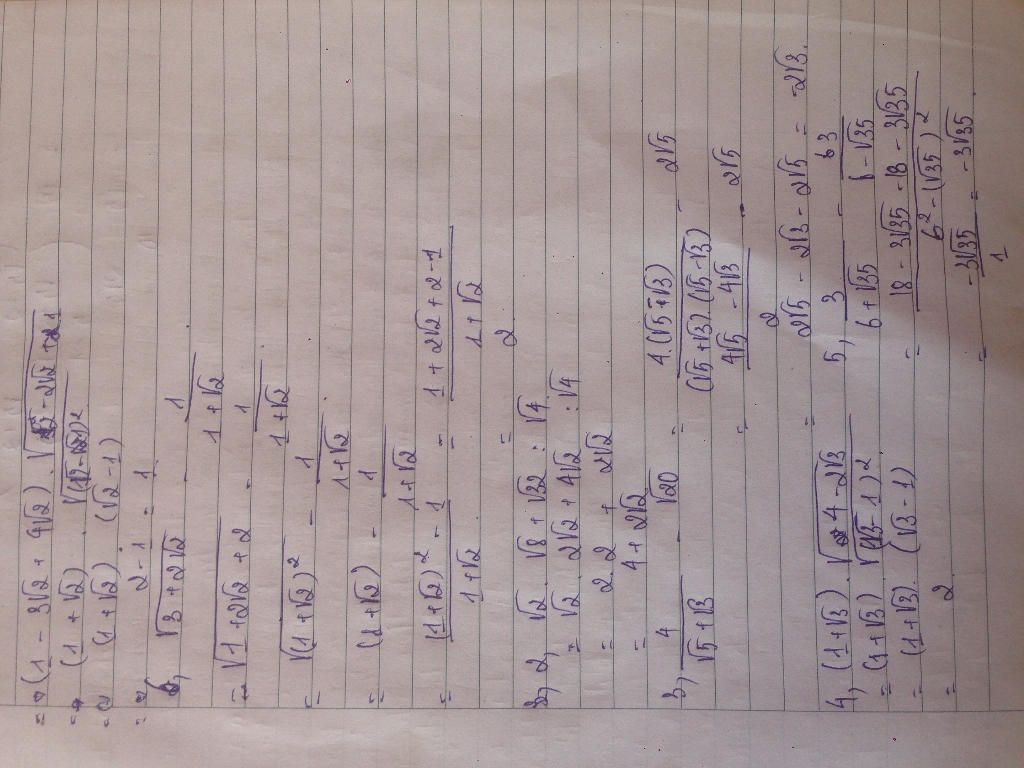 = (1 - 3√2 + 4√2) . √(2 - 2√2 + 1)
= (1 + √2) √((√2 - 1)²)
= (1 + √2) (√2 - 1)
= 2 - 1 = 1
√(3 + 2√2) - 1/(1 + √2)
= √(1 + 2√2 + 2) - 1/(1 + √2)
= √((1 + √2)²) - 1/(1 + √2)
= (1 + √2) - 1/(1 + √2)
= ((1 + √2)² - 1)/(1 + √2) = (1 + 2√2 + 2 - 1)/(1 + √2)
= 2
2, √2 . √8 + √32 : √4
= √2 . 2√2 + 4√2 : √4
= 2 . 2 + 2√2
= 4 + 2√2
3, 4/(√5 + √3) - √20 = 4.(√5 - √3)/((√5 + √3) (√5 - √3)) - 2√5
= (4√5 - 4√3)/2 - 2√5
= 2√5 - 2√3 - 2√5 = -2√3.
4, (1 + √3) . √(4 - 2√3)
= (1 + √3) √((√3 - 1)²)
= (1 + √3) . (√3 - 1)
= 2
5, 3/(6 + √35) - 3/(6 - √35)
= (18 - 3√35 - 18 - 3√35)/(6² - (√35)²)
= -3√35/1 = -3√35